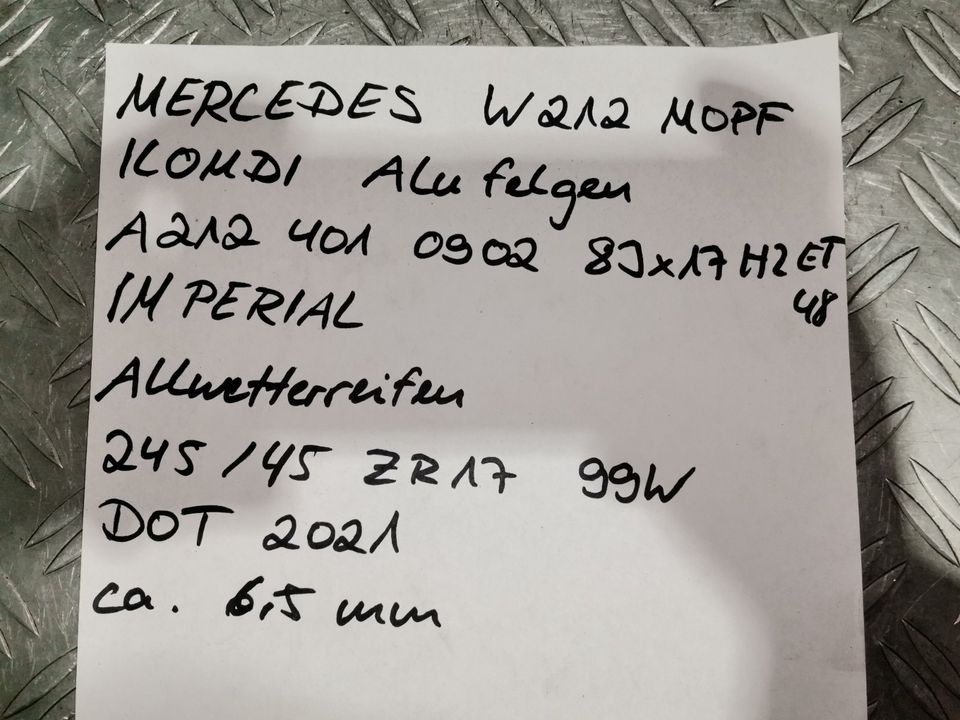 MERCEDES W212 MOPF
KOMBI Alufelgen
A212 401 0902 8Jx17 H2 ET 48
IMPERIAL
Allwetterreifen
245/45 ZR17 99W
DOT 2021
ca. 6,5 mm